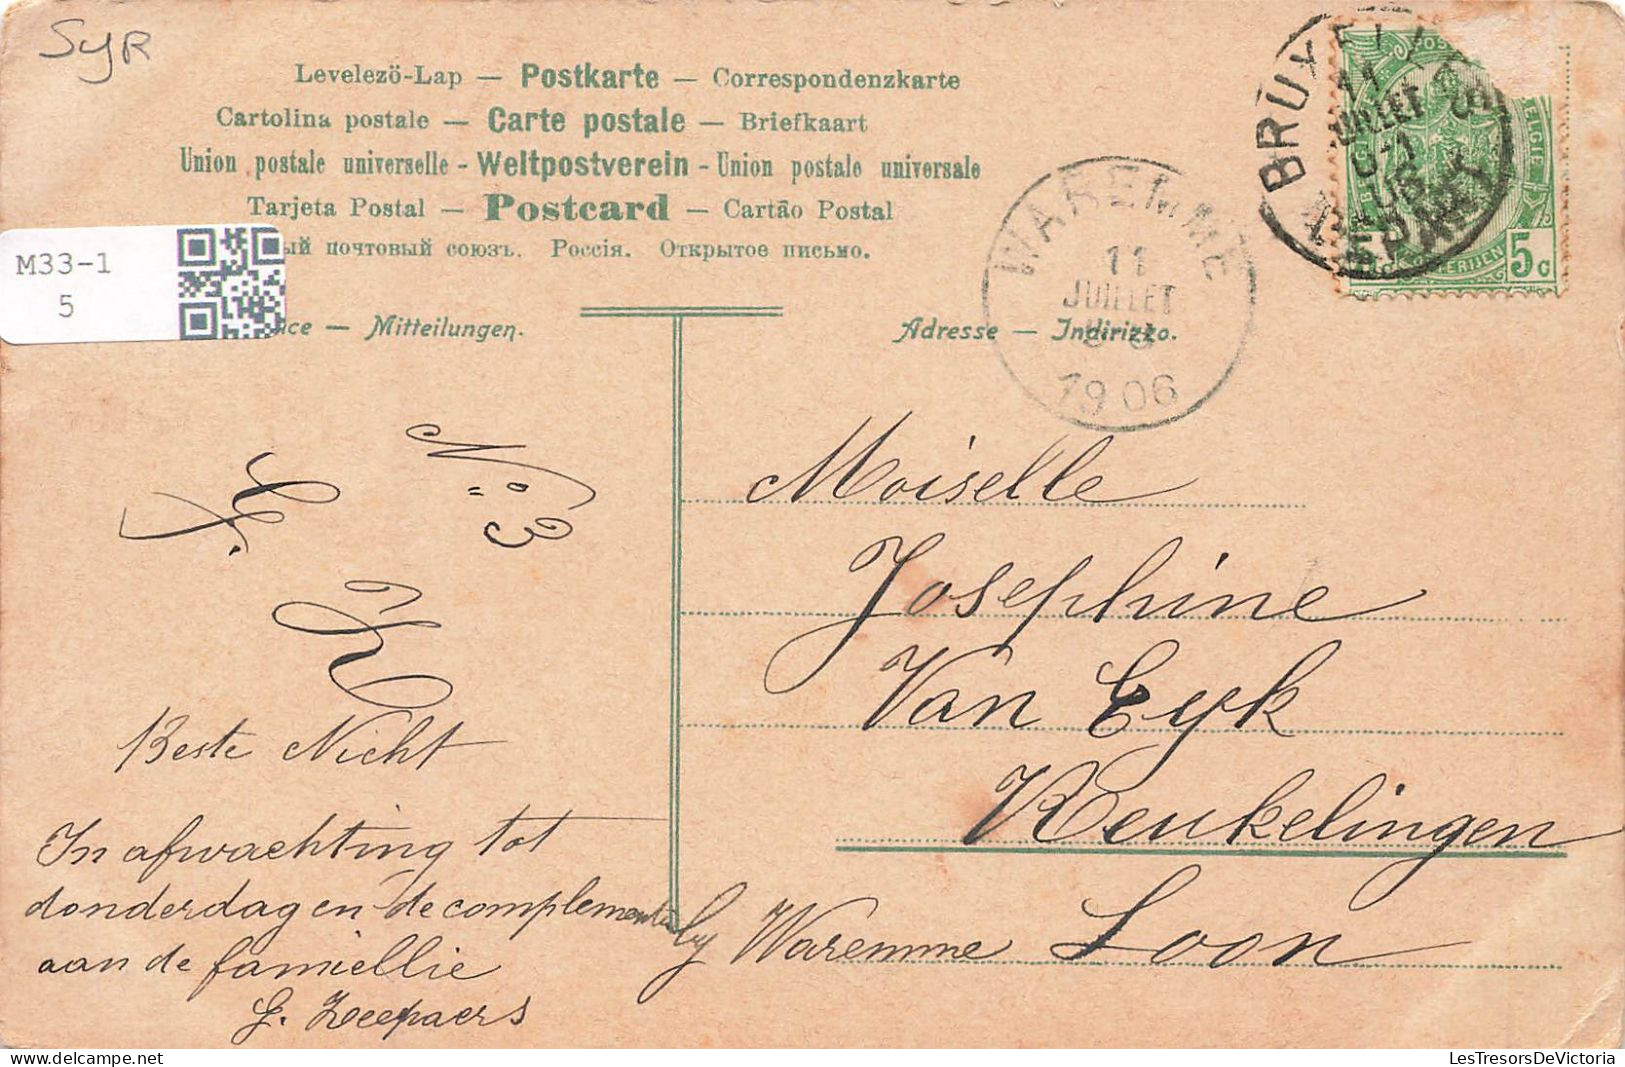 SyR
Levelezö-Lap — Postkarte — Correspondenzkarte
Cartolina postale — Carte postale — Briefkaart
Union postale universelle - Weltpostverein - Union postale universale
Tarjeta Postal — Postcard — Cartão Postal
ый почтовый союзъ. Россія. Открытое письмо.
M33-1
5
ce — Mitteilungen.
Adresse — Indirizzo.
BRUXELLES
11
JUILLET
WAREMME
11
JUILLET
1906
5c
N:3
Moiselle
Josephine
Van Eyk
Reukelingen
by Waremme Loon
Beste Nicht
In afwachting tot
donderdag en de complementen
aan de famiellie
G. Zeepaers
LesTresorsDeVictoria